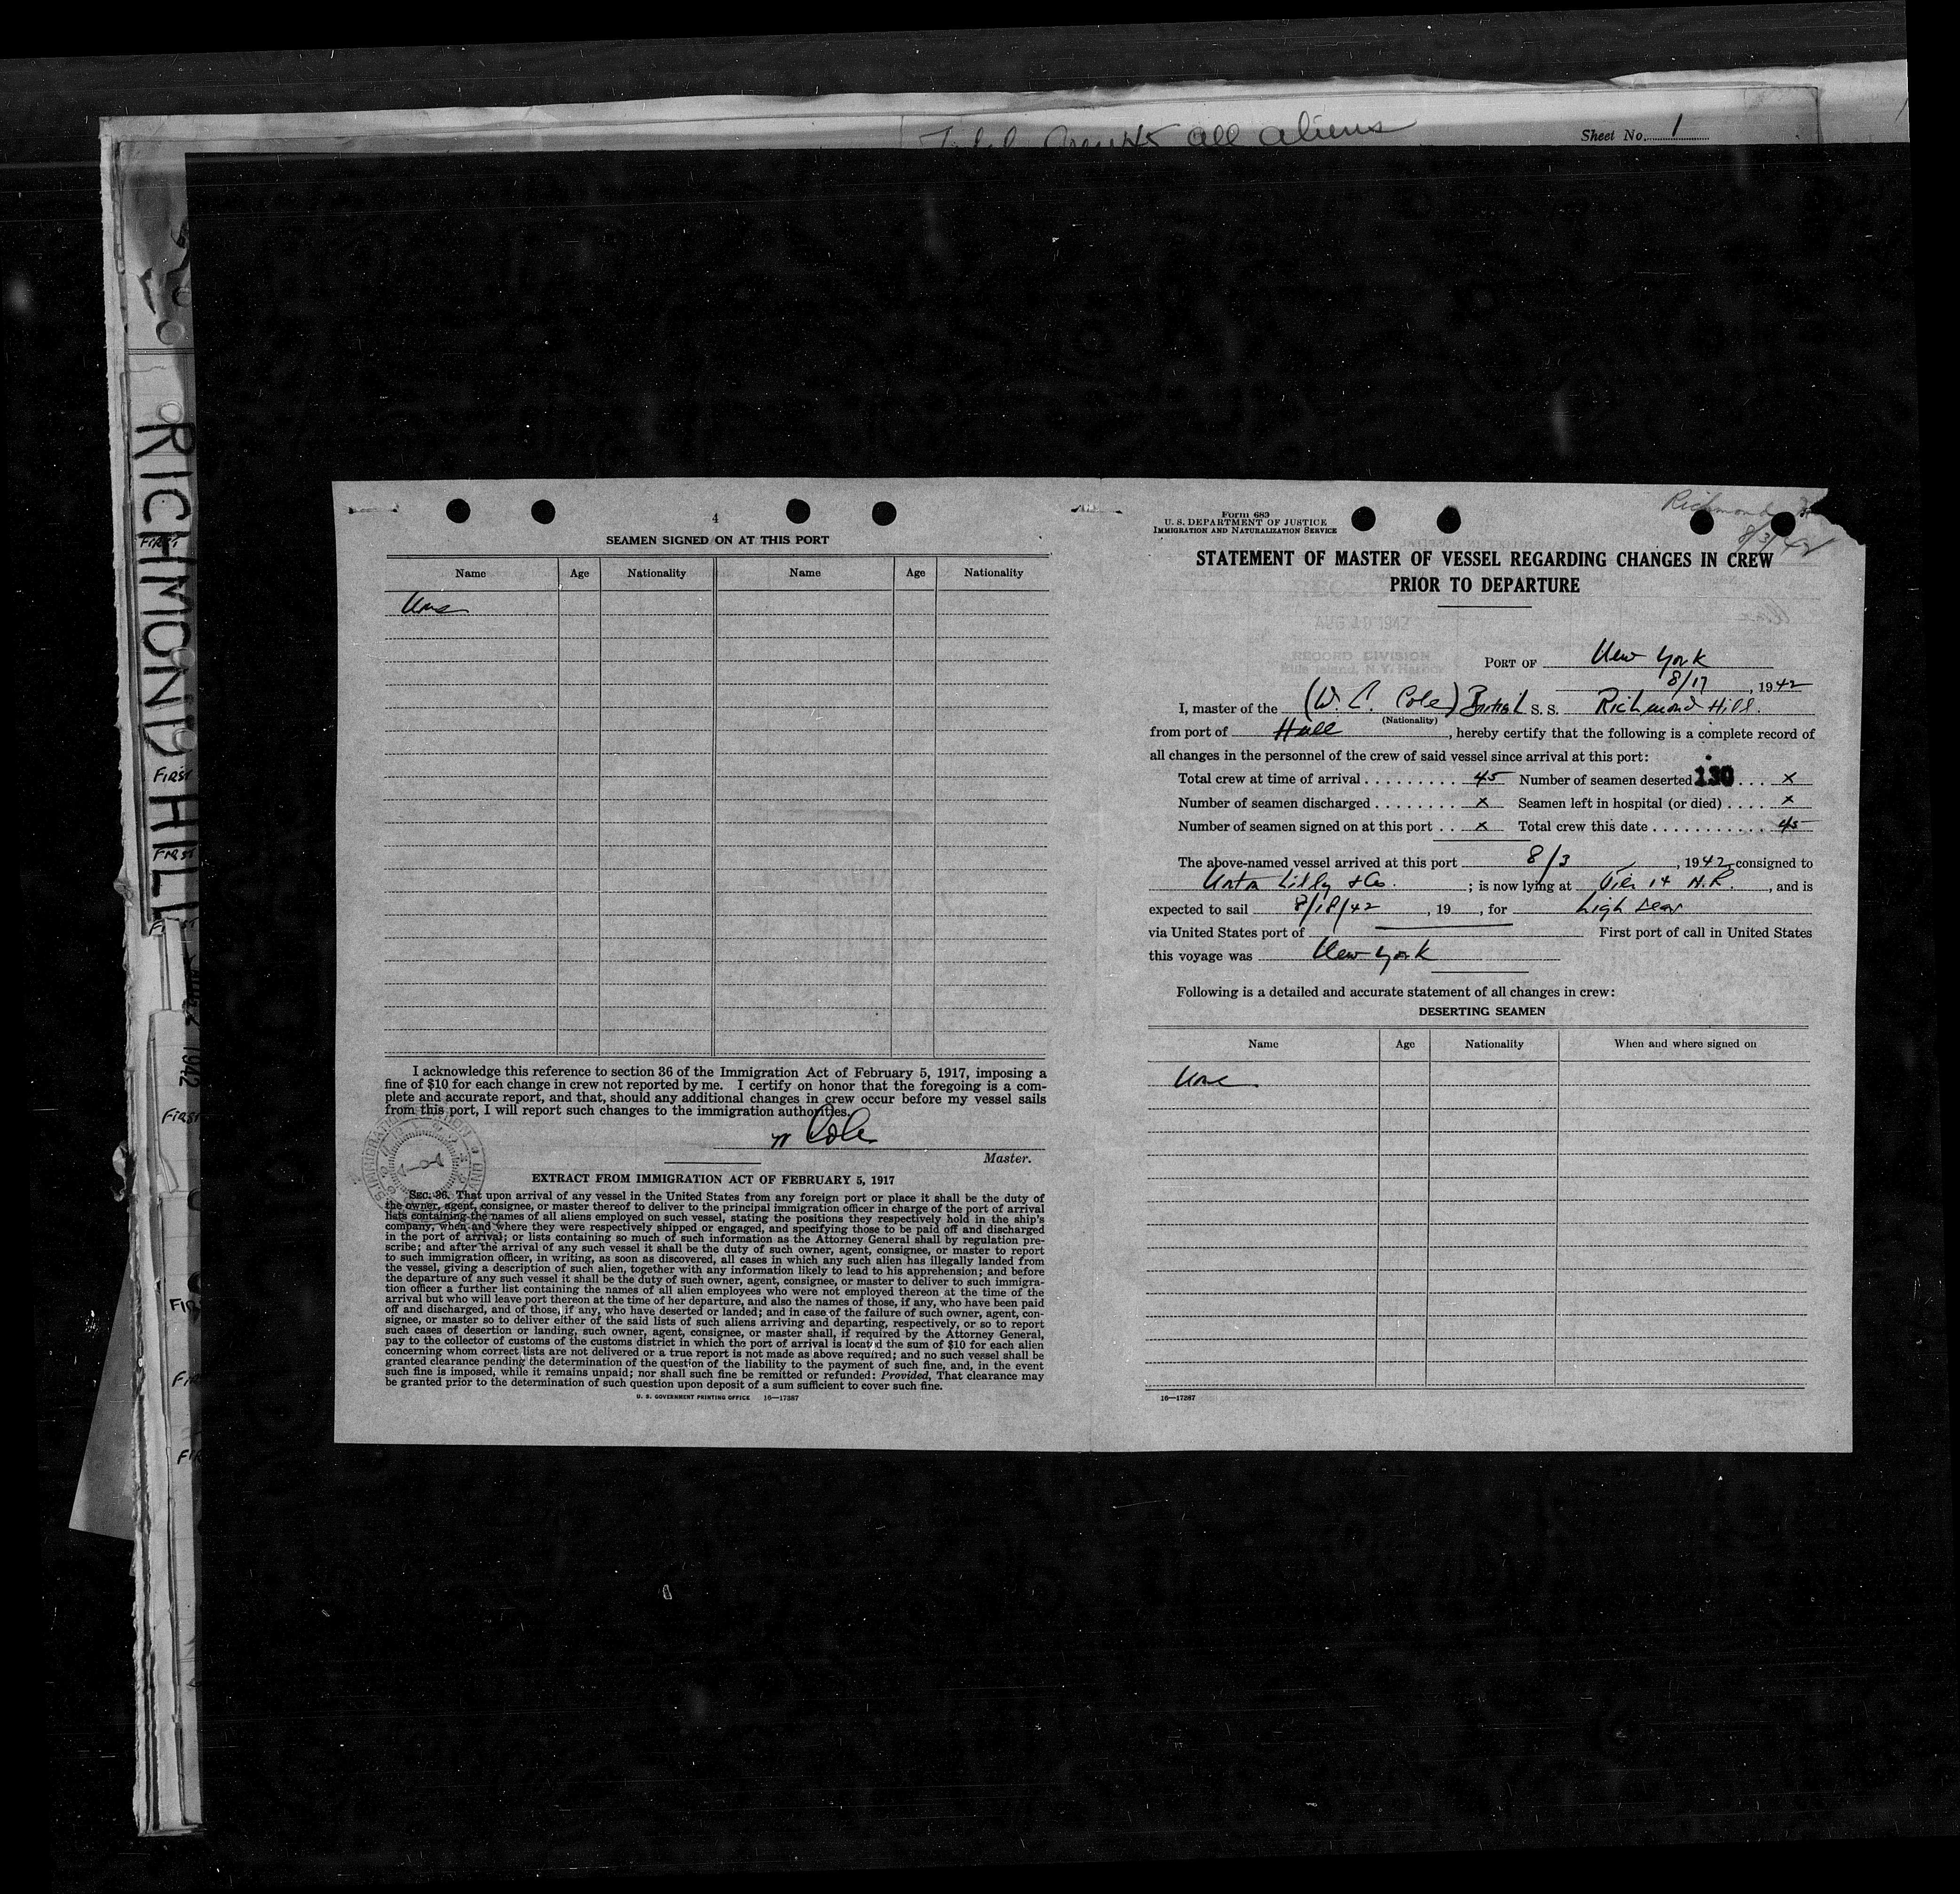 all aliens
Sheet No. 1
RICHMOND HILL
FIRST
FIRST
FIRST
FIRST
1942
4
SEAMEN SIGNED ON AT THIS PORT
Name Age Nationality Name Age Nationality
None
I acknowledge this reference to section 36 of the Immigration Act of February 5, 1917, imposing a
fine of $10 for each change in crew not reported by me. I certify on honor that the foregoing is a com-
plete and accurate report, and that, should any additional changes in crew occur before my vessel sails
from this port, I will report such changes to the immigration authorities.
W Cole
Master.
EXTRACT FROM IMMIGRATION ACT OF FEBRUARY 5, 1917
SEC. 36. That upon arrival of any vessel in the United States from any foreign port or place it shall be the duty of
the owner, agent, consignee, or master thereof to deliver to the principal immigration officer in charge of the port of arrival
lists containing the names of all aliens employed on such vessel, stating the positions they respectively hold in the ship's
company, when and where they were respectively shipped or engaged, and specifying those to be paid off and discharged
in the port of arrival; or lists containing so much of such information as the Attorney General shall by regulation pre-
scribe; and after the arrival of any such vessel it shall be the duty of such owner, agent, consignee, or master to report
to such immigration officer, in writing, as soon as discovered, all cases in which any such alien has illegally landed from
the vessel, giving a description of such alien, together with any information likely to lead to his apprehension; and before
the departure of any such vessel it shall be the duty of such owner, agent, consignee, or master to deliver to such immigra-
tion officer a further list containing the names of all alien employees who were not employed thereon at the time of the
arrival but who will leave port thereon at the time of her departure, and also the names of those, if any, who have been paid
off and discharged, and of those, if any, who have deserted or landed; and in case of the failure of such owner, agent, con-
signee, or master so to deliver either of the said lists of such aliens arriving and departing, respectively, or so to report
such cases of desertion or landing, such owner, agent, consignee, or master shall, if required by the Attorney General,
pay to the collector of customs of the customs district in which the port of arrival is located the sum of $10 for each alien
concerning whom correct lists are not delivered or a true report is not made as above required; and no such vessel shall be
granted clearance pending the determination of the question of the liability to the payment of such fine, and, in the event
such fine is imposed, while it remains unpaid; nor shall such fine be remitted or refunded: Provided, That clearance may
be granted prior to the determination of such question upon deposit of a sum sufficient to cover such fine.
U. S. GOVERNMENT PRINTING OFFICE 16—17287
Richmond
8/3/42
Form 689
U. S. DEPARTMENT OF JUSTICE
IMMIGRATION AND NATURALIZATION SERVICE
STATEMENT OF MASTER OF VESSEL REGARDING CHANGES IN CREW
PRIOR TO DEPARTURE
AUG 20 1942
RECORD DIVISION
Ellis Island, N.Y. Harbor
PORT OF New York
8/17, 1942
I, master of the (W. C. Cole) British S. S. Richmond Hill.
(Nationality)
from port of Hull, hereby certify that the following is a complete record of
all changes in the personnel of the crew of said vessel since arrival at this port:
Total crew at time of arrival 45 Number of seamen deserted 130 x
Number of seamen discharged x Seamen left in hospital (or died) x
Number of seamen signed on at this port x Total crew this date 45
The above-named vessel arrived at this port 8/3, 1942 consigned to
Norton Lilly & Co. ; is now lying at Pier 14 N.R., and is
expected to sail 8/18/42, 19, for high seas
via United States port of First port of call in United States
this voyage was New York
Following is a detailed and accurate statement of all changes in crew:
DESERTING SEAMEN
Name Age Nationality When and where signed on
None
16—17287